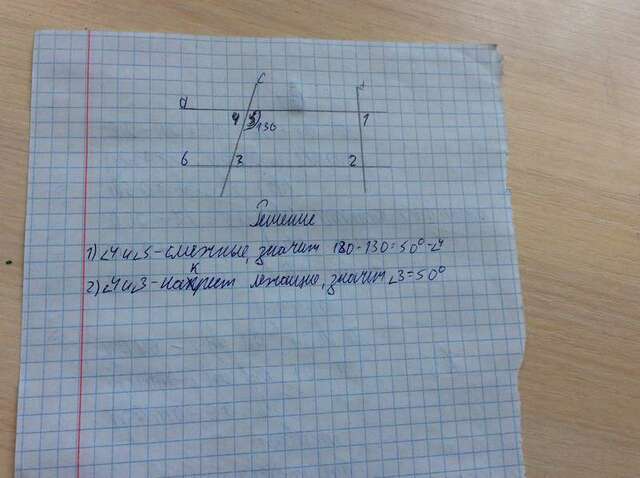 c
d
a
4 5 130
1
б
3
2
Решение
1) ∠4 и ∠5 - смежные, значит 180-130=50°-∠4
2) ∠4 и ∠3 - накрест лежащие, значит ∠3=50°